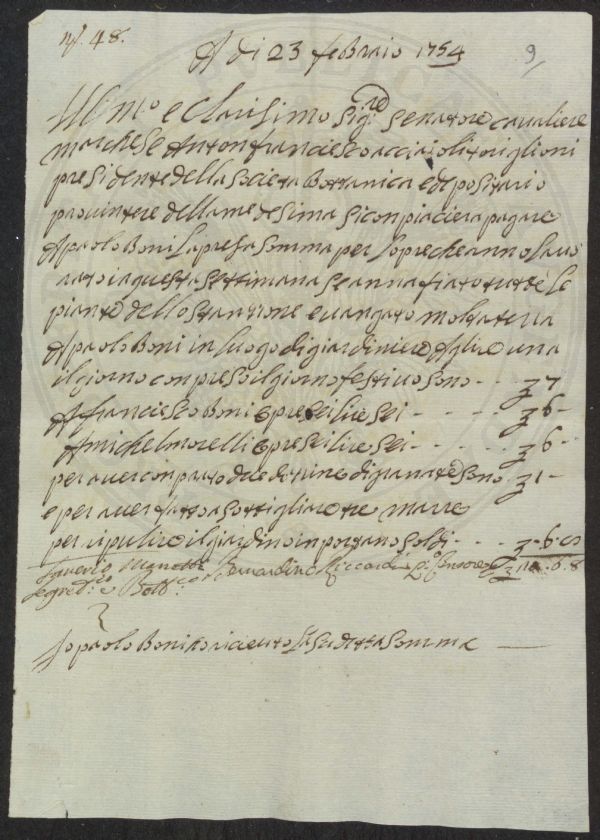 N. 48.
A di 23 febbraio 1754
9
Ill mo e Clarisimo Sig:re Senatore cavaliere
marchese Antonfranciesco acciaioli toriglioni
presidente della Societa Bottanica e depositario
provintere della medesima si conpiaciera pagare
A paolo Boni la presa somma per lopre che anno lavo
rato in questa settimana se anna fiato tutte le
piante dello stanzone e vangato molta terra
A paolo Boni in luogo di giardiniere A lire una
il giorno conpreso il giorno festivo sono - - - 7
A franciesco Boni opre sei lire sei - - - - - 6 -
A michel morelli opre sei lire sei - - - - 6 -
per aver conprato due ditune di granate sono 1 -
e per aver fatto asottigliare tre marre
per ripulire il giardino inportano soldi - - - - 6
Saverio Manetti Bernardino Riccardi Censore 6. 8
Segret:io Bott:
Io paolo Boni o riceuto la sudetta somma